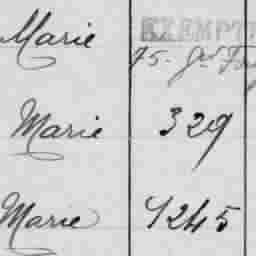 Marie EXEMPT
75-
Marie 329
Marie 1245